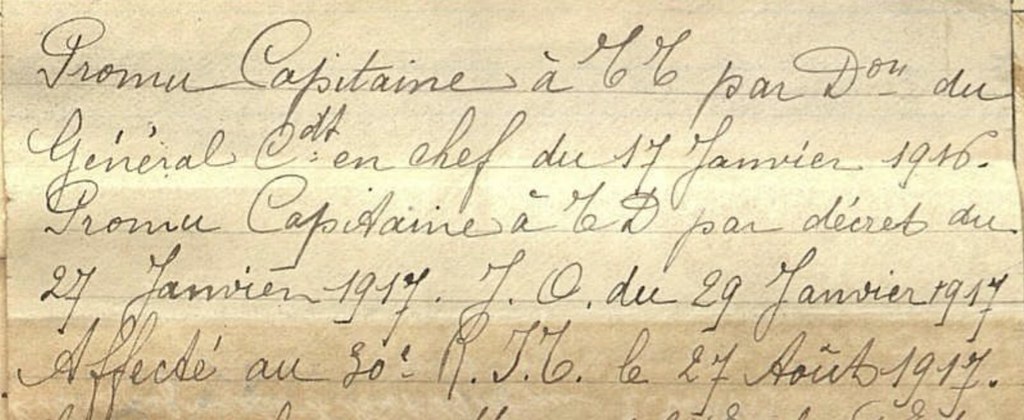 Promu Capitaine à TT par Don du
Général Cdt en chef du 17 Janvier 1916.
Promu Capitaine à TD par décret du
27 Janvier 1917. J. O. du 29 Janvier 1917
Affecté au 30e R. I. T. le 27 Août 1917.